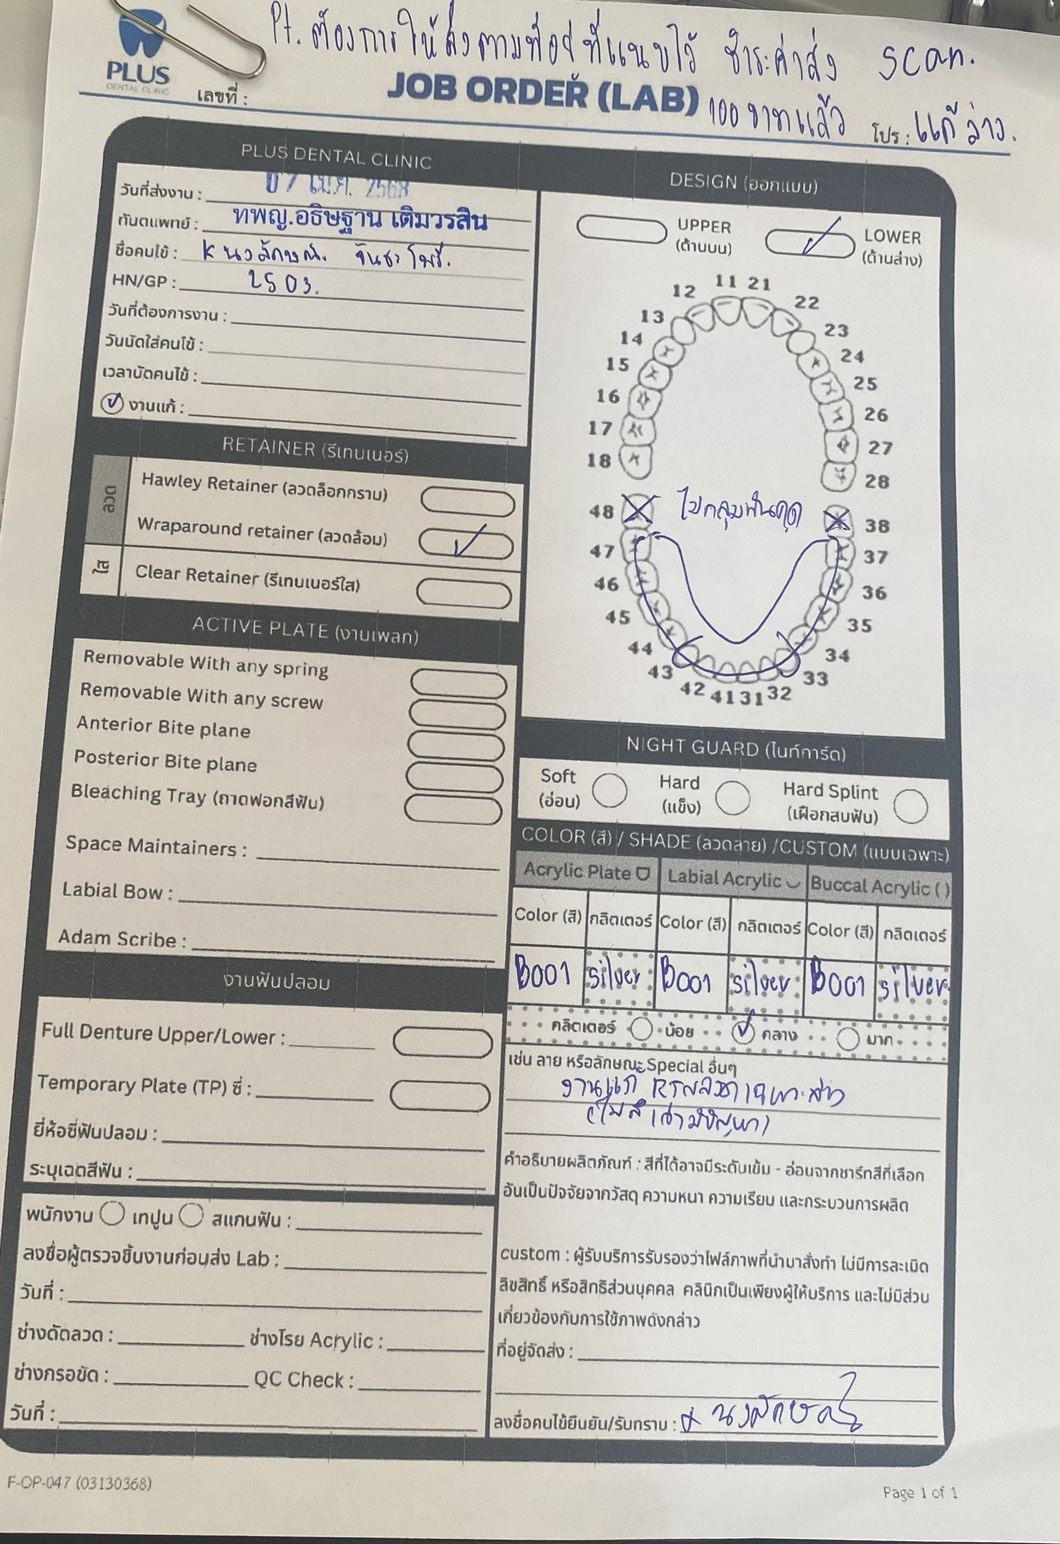 Pt. ต้องการให้ส่งตามที่อยู่ที่แนบไว้ ชำระค่าส่ง scan.
PLUS
DENTAL CLINIC
เลขที่ :
JOB ORDER (LAB)
100 บาทแล้ว โปร : แก้ล่าง.
PLUS DENTAL CLINIC
วันที่ส่งงาน : 07 เม.ย. 2568
ทันตแพทย์ : ทพญ.อธิษฐาน เติมวรสิน
ชื่อคนไข้ : K นงลักษณ์
HN/GP : 2503.
วันที่ต้องการงาน :
วันนัดใส่คนไข้ :
เวลานัดคนไข้ :
งานแก้ :
RETAINER (รีเทนเนอร์)
ลวด
Hawley Retainer (ลวดล็อกกราม)
Wraparound retainer (ลวดล้อม)
ใส
Clear Retainer (รีเทนเนอร์ใส)
ACTIVE PLATE (งานเพลท)
Removable With any spring
Removable With any screw
Anterior Bite plane
Posterior Bite plane
Bleaching Tray (ถาดฟอกสีฟัน)
Space Maintainers :
Labial Bow :
Adam Scribe :
งานฟันปลอม
Full Denture Upper/Lower :
Temporary Plate (TP) ซี่ :
ยี่ห้อซี่ฟันปลอม :
ระบุเฉดสีฟัน :
พนักงาน เทปูน สแกนฟัน :
ลงชื่อผู้ตรวจชิ้นงานก่อนส่ง Lab :
วันที่ :
ช่างดัดลวด : ช่างโรย Acrylic :
ช่างกรอขัด : QC Check :
วันที่ :
DESIGN (ออกแบบ)
UPPER
(ด้านบน)
LOWER
(ด้านล่าง)
11 21
12 22
13 23
14 24
15 25
16 26
17 27
18 28
48 ไม่คลุมฟันคุด 38
47 37
46 36
45 35
44 34
43 33
42 41 31 32
NIGHT GUARD (ไนท์การ์ด)
Soft
(อ่อน)
Hard
(แข็ง)
Hard Splint
(เฝือกสบฟัน)
COLOR (สี) / SHADE (ลวดลาย) /CUSTOM (แบบเฉพาะ)
Acrylic Plate Labial Acrylic Buccal Acrylic ( )
Color (สี) กลิตเตอร์ Color (สี) กลิตเตอร์ Color (สี) กลิตเตอร์
B001 silver B001 silver B001 silver
กลิตเตอร์ น้อย กลาง มาก
เช่น ลาย หรือลักษณะ Special อื่นๆ
งานแก้ RTลวดเฉพาะล่าง
(ใส่ตัวเก่ามีปัญหา)
คำอธิบายผลิตภัณฑ์ : สีที่ได้อาจมีระดับเข้ม - อ่อนจากชาร์ทสีที่เลือก
อันเป็นปัจจัยจากวัสดุ ความหนา ความเรียบ และกระบวนการผลิต
custom : ผู้รับบริการรับรองว่าไฟล์ภาพที่นำมาสั่งทำ ไม่มีการละเมิด
ลิขสิทธิ์ หรือสิทธิส่วนบุคคล คลินิกเป็นเพียงผู้ให้บริการ และไม่มีส่วน
เกี่ยวข้องกับการใช้ภาพดังกล่าว
ที่อยู่จัดส่ง :
ลงชื่อคนไข้ยืนยัน/รับทราบ : x นงลักษณ์
F-OP-047 (03130368)
Page 1 of 1